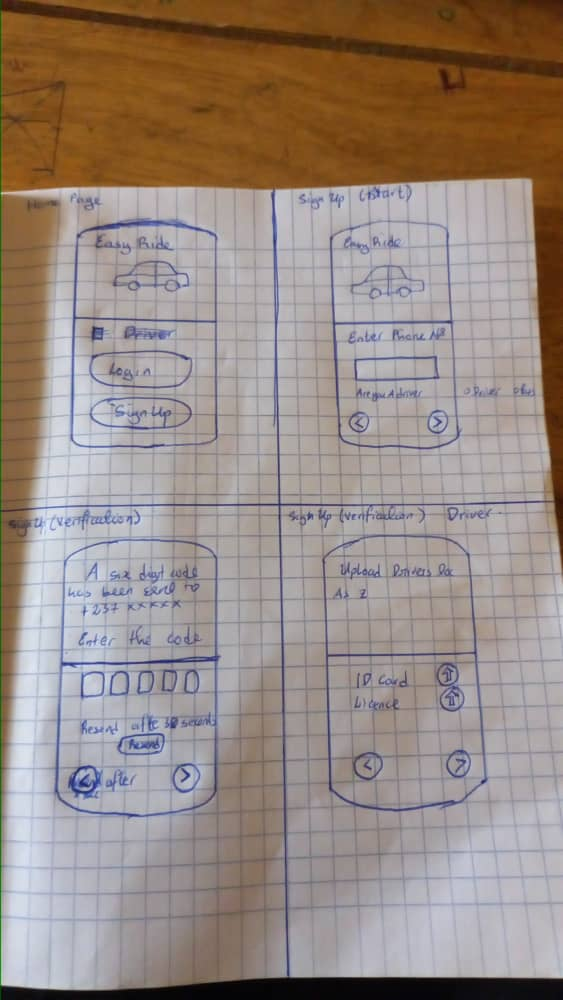 Home Page
Easy Ride
Driver
Login
Sign Up
Sign Up (Start)
Easy Ride
Enter Phone №
Are you A driver
Driver
Sign Up (verification)
A six digit code
has been send to
+237 xxxxx
Enter the code
Resend after 30 seconds
Resend
after
Sign Up (verification) Driver.
Upload Drivers Doc
As
ID Card
Licence